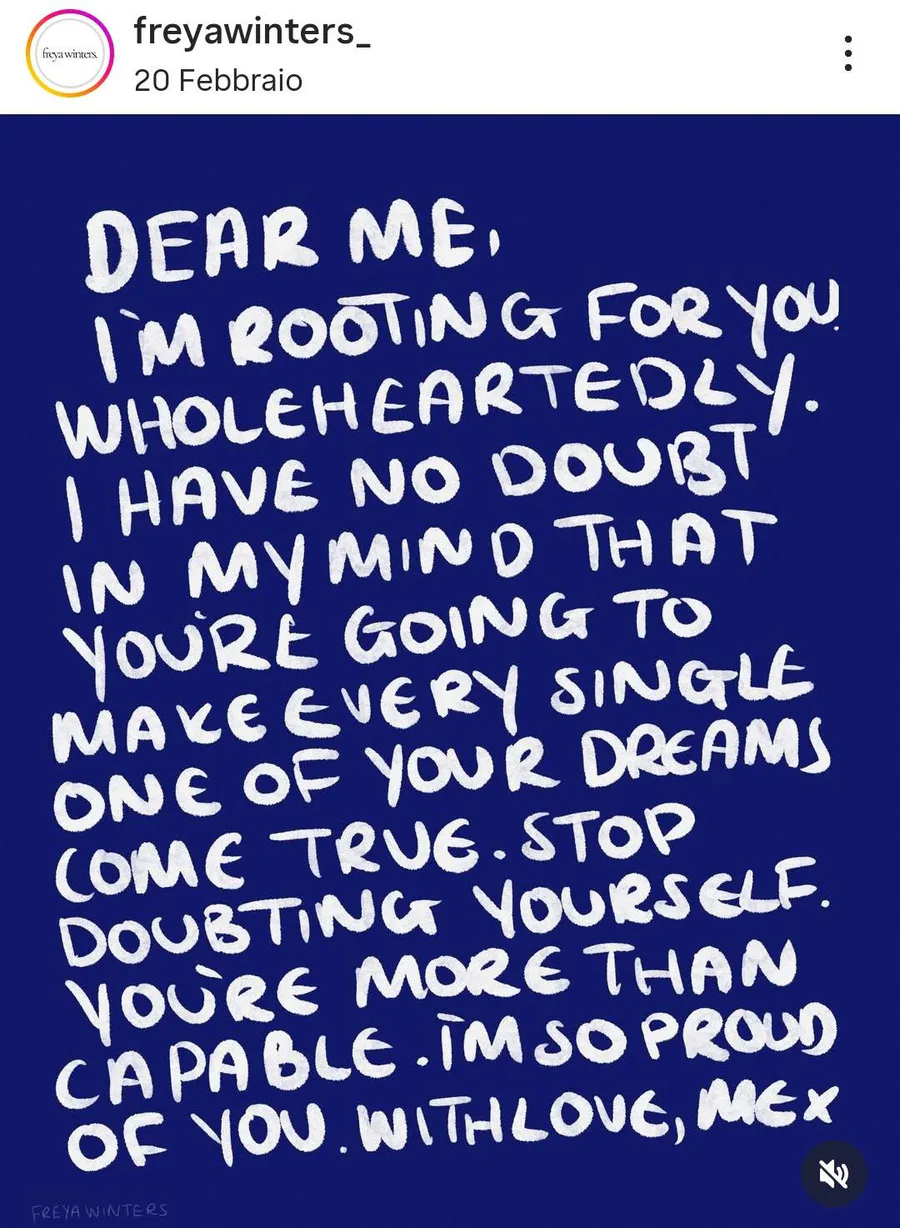 freyawinters_
freya winters.
20 Febbraio
DEAR ME,
I'M ROOTING FOR YOU.
WHOLEHEARTEDLY.
I HAVE NO DOUBT
IN MY MIND THAT
YOU'RE GOING TO
MAKE EVERY SINGLE
ONE OF YOUR DREAMS
COME TRUE. STOP
DOUBTING YOURSELF.
YOU'RE MORE THAN
CAPABLE. I'M SO PROUD
OF YOU. WITH LOVE, ME X
FREYA WINTERS